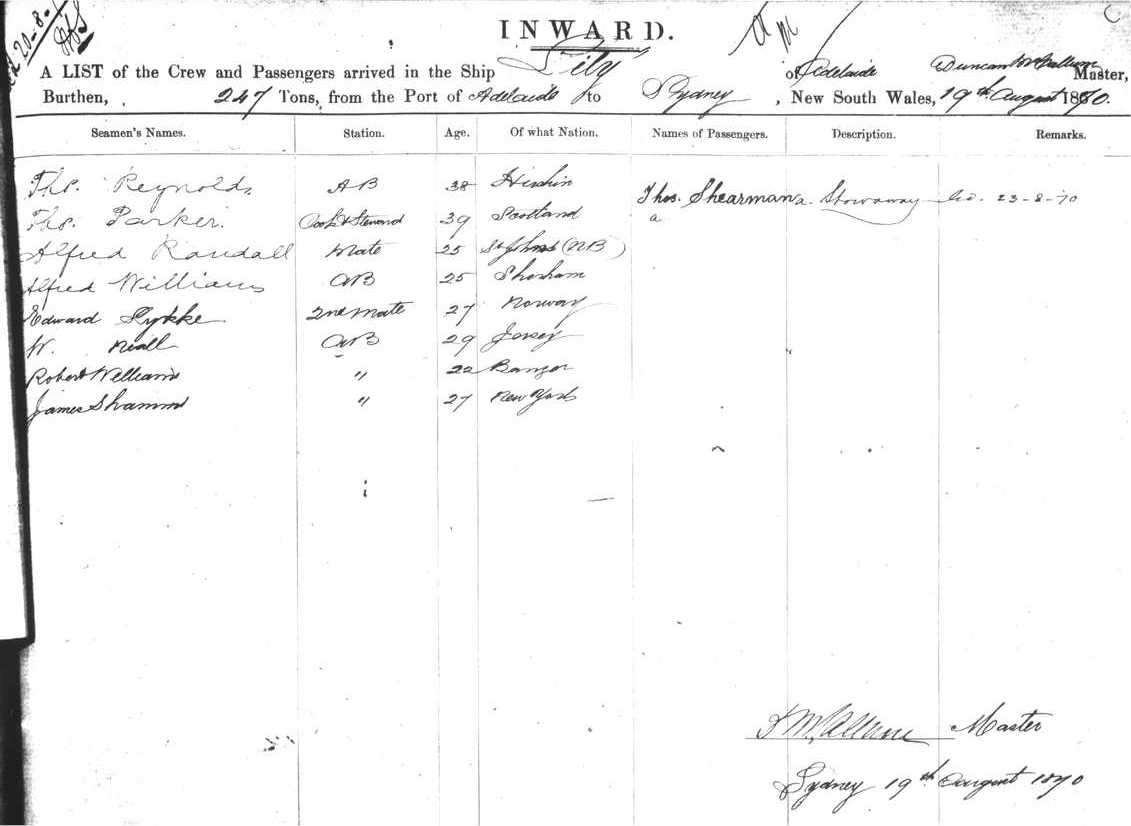 20-8-
INWARD.
A LIST of the Crew and Passengers arrived in the Ship Lily of Adelaide Duncan Master,
Burthen, 247 Tons, from the Port of Adelaide to Sydney, New South Wales, 19th August 1870.
Seamen's Names. Station. Age. Of what Nation. Names of Passengers. Description. Remarks.
Thos. Reynolds AB 38 Thos. Shearman a Stowaway 23-8-70
Thos. Parker Cook & Steward 39 Scotland a
Alfred Randall Mate 25 St Johns (NB)
Alfred Williams AB 25 Shoreham
Edward Rykke 2nd Mate 27 Norway
W. Niall AB 29 Jersey
Robert Williams " 22 Bangor
James Shammd " 27 New York
Master
Sydney 19th August 1870